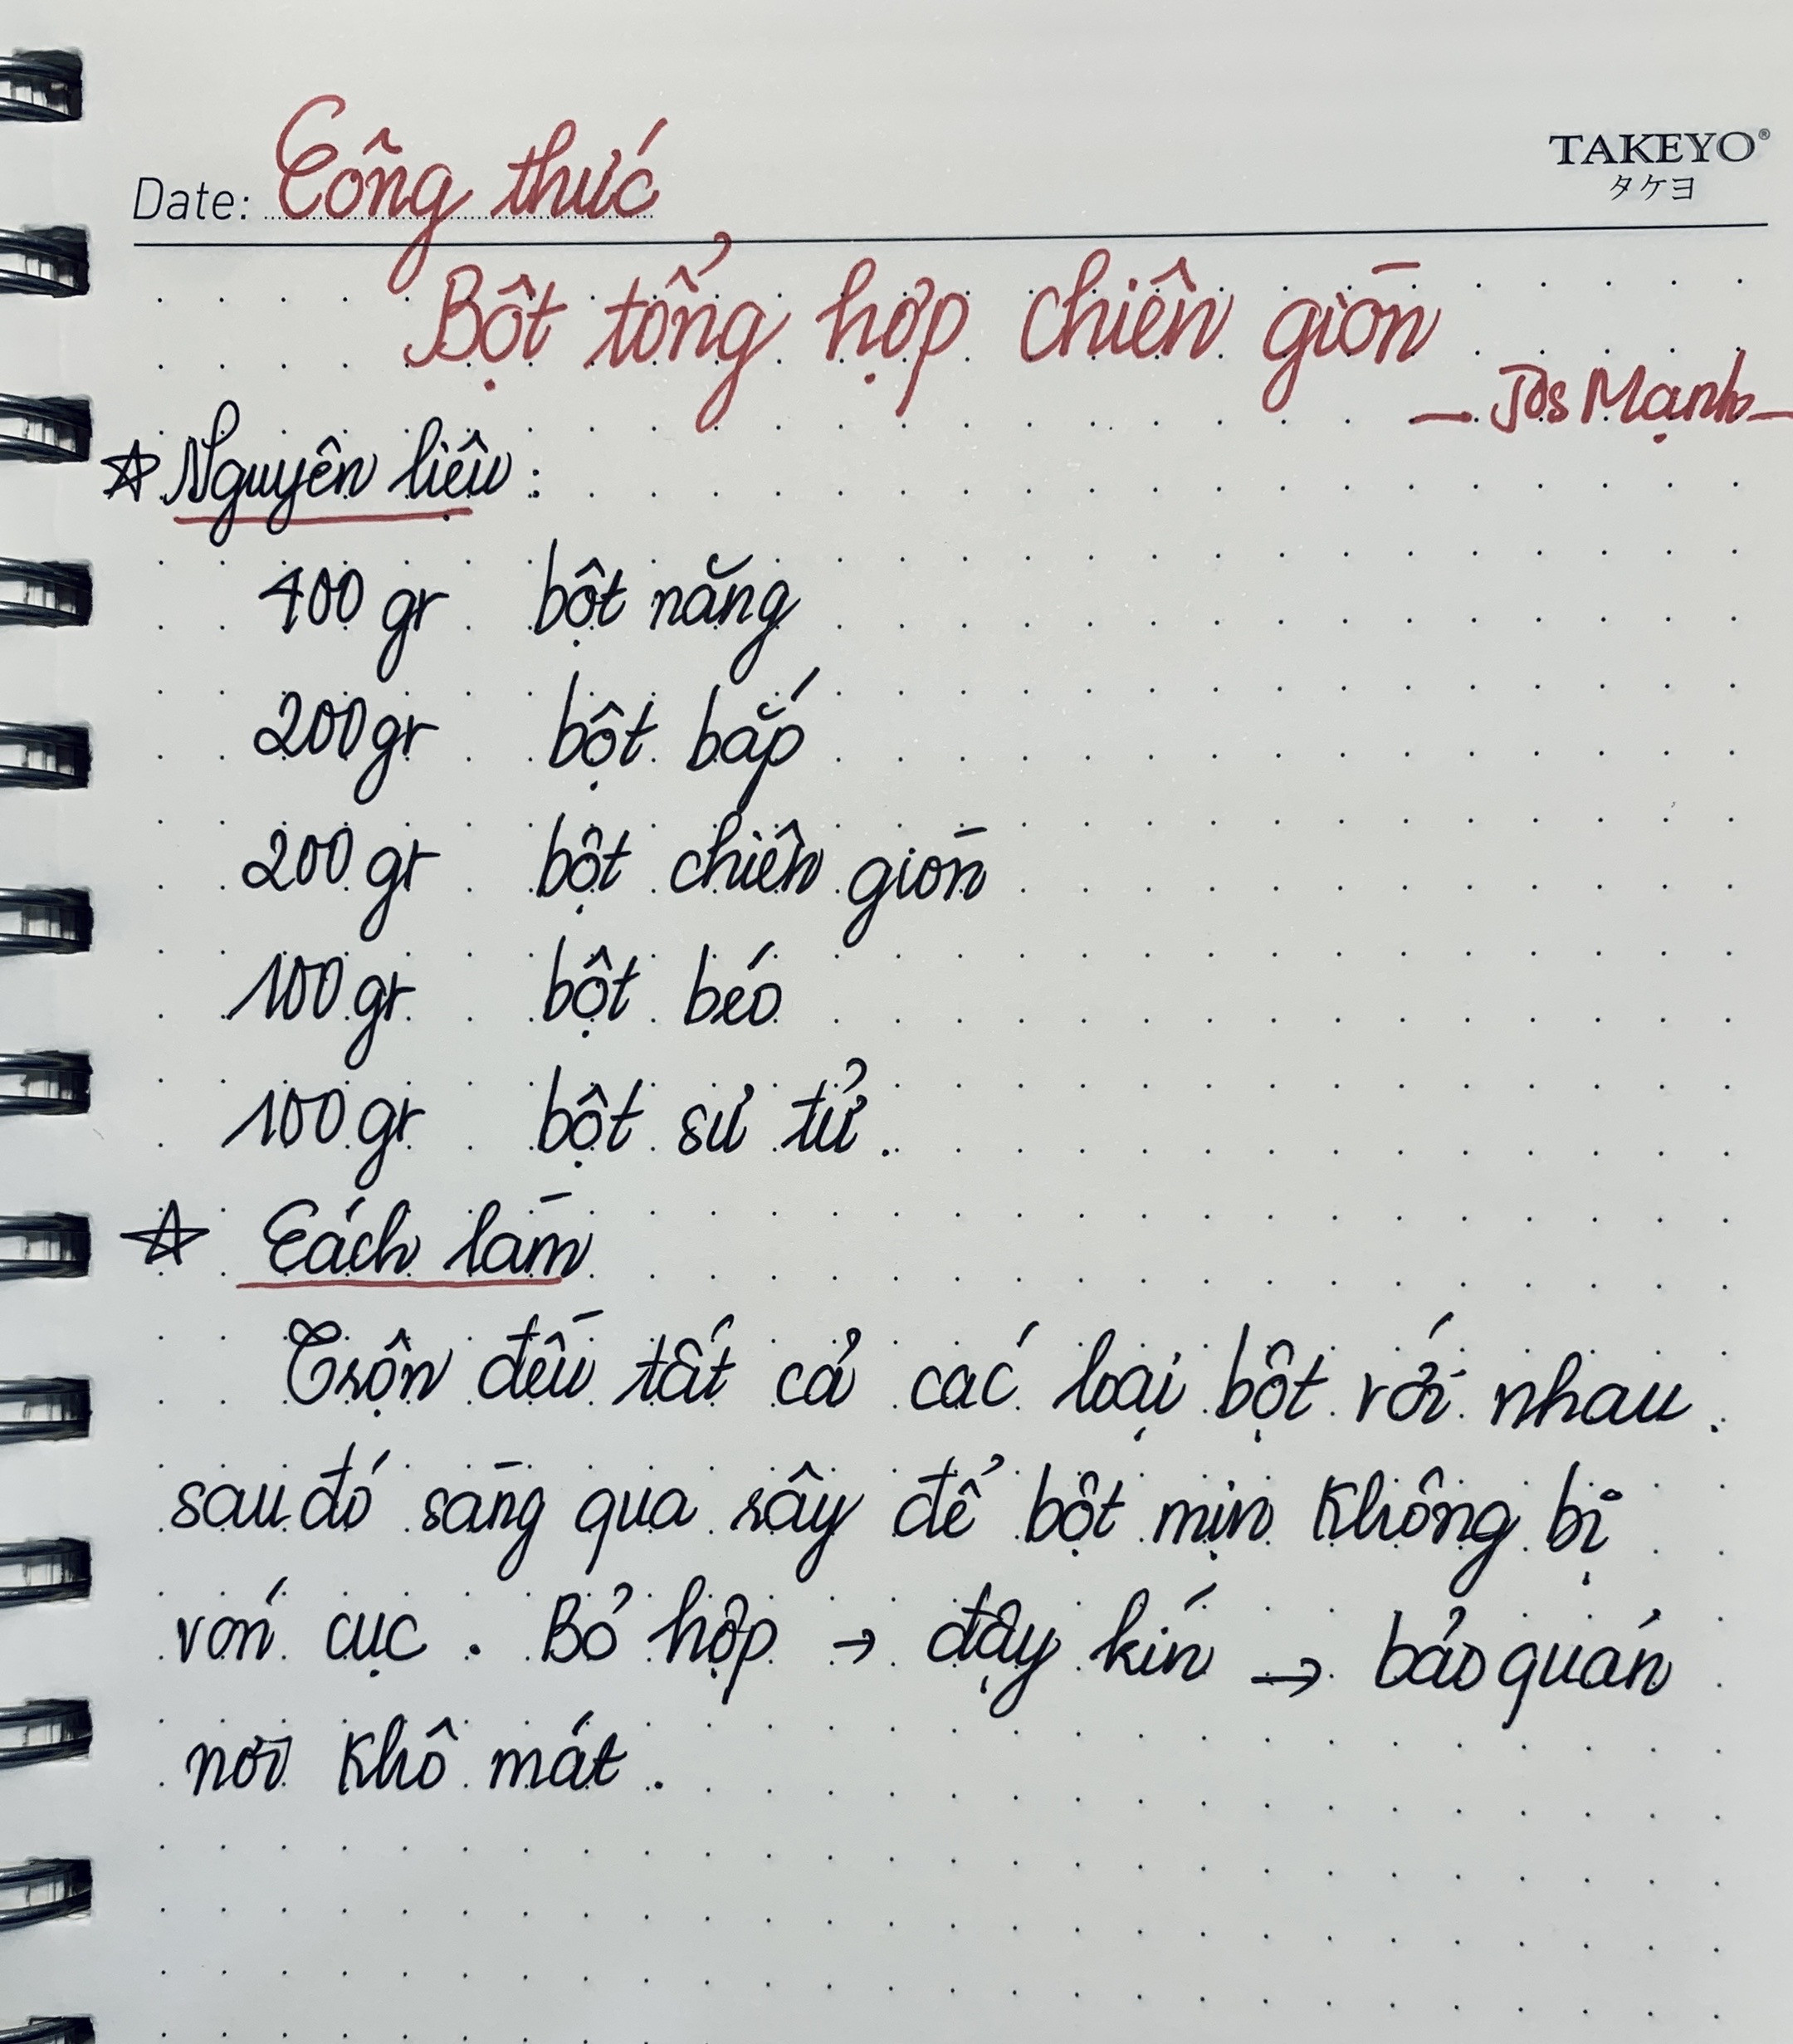 TAKEYO®
タケヨ
Date: Công thức
Bột tổng hợp chiên giòn
- Jos Mạnh -
☆ Nguyên liệu:
400 gr bột năng
200 gr bột bắp
200 gr bột chiên giòn
100 gr bột béo
100 gr bột sư tử.
☆ Cách làm
Trộn đều tất cả các loại bột với nhau.
sau đó sàng qua rây để bột mịn không bị
vón cục. Bỏ hộp → đậy kín → bảo quản
nơi khô mát.